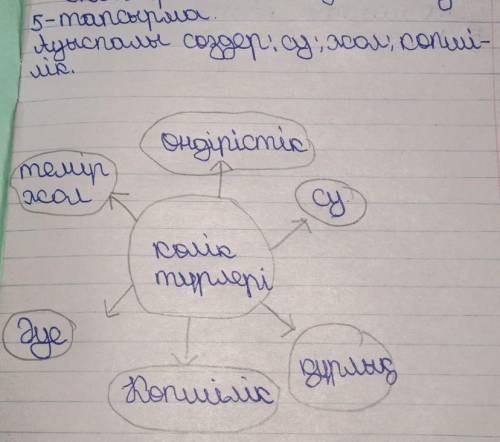 5-тапсырма.
Ауыспалы сөздер: су; жол; көпші-
лік.
өндірістік
темір
жол
су
көлік
түрлері
Әуе
құрлық
Көпшілік